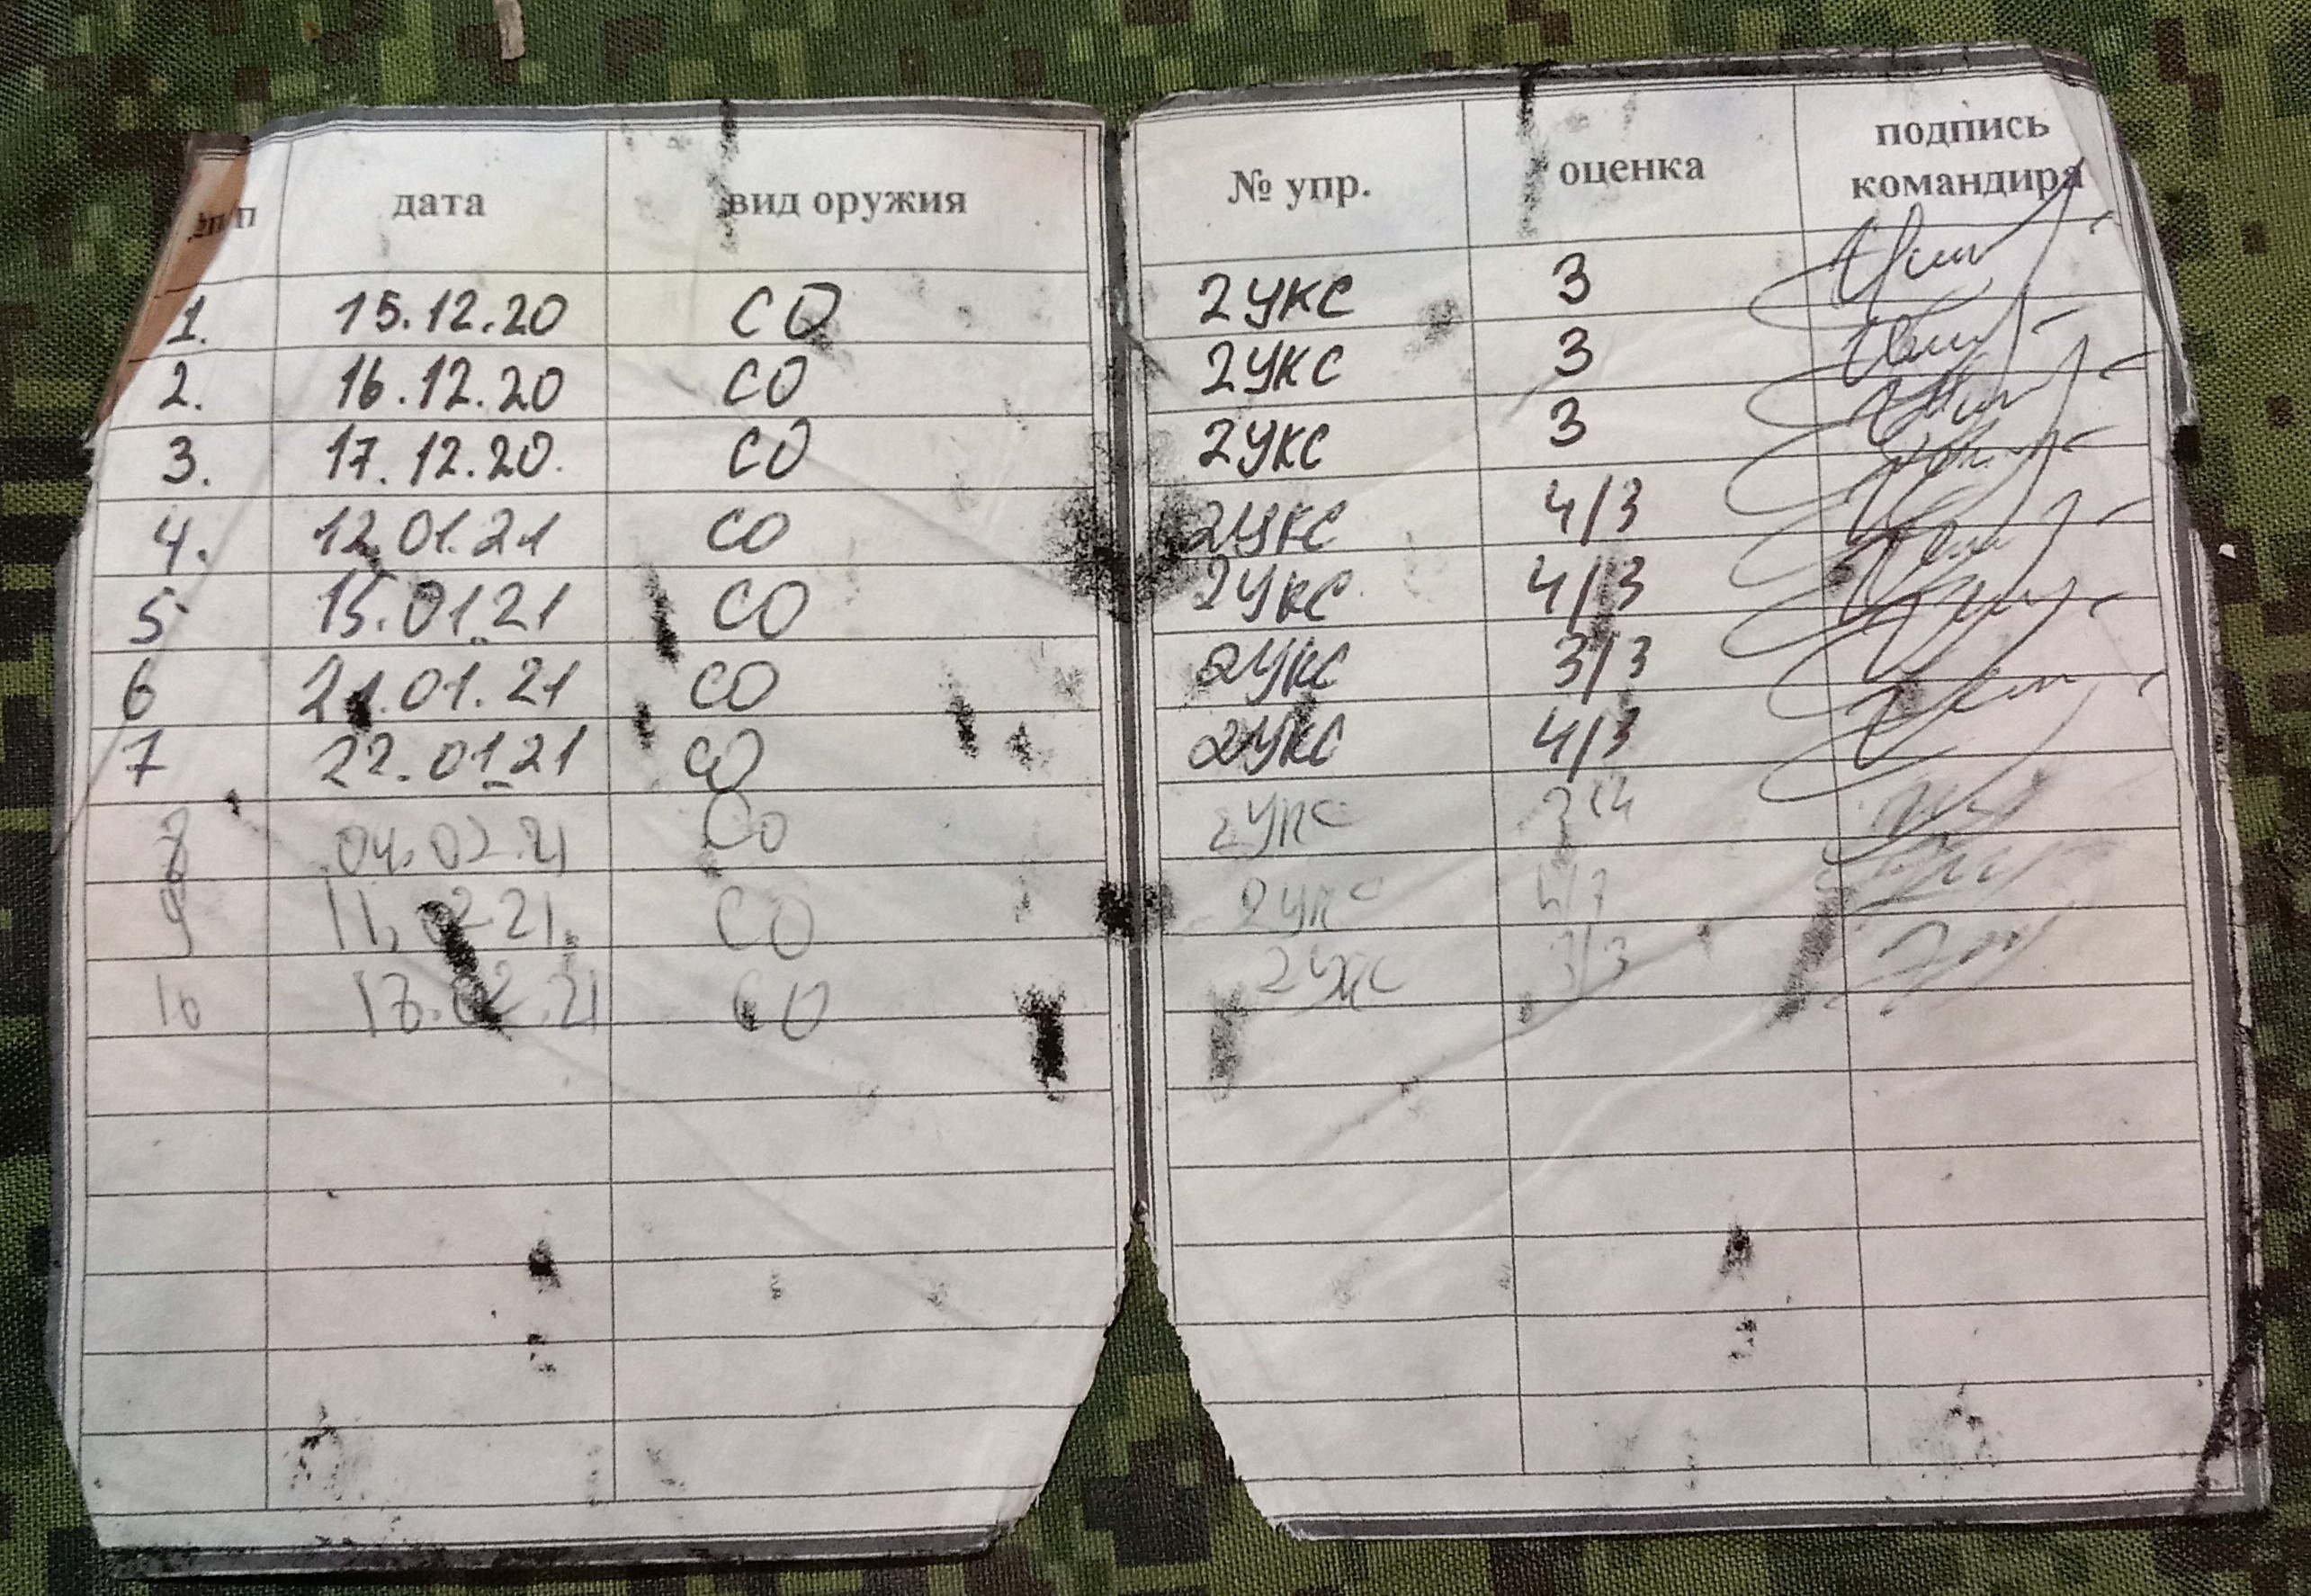 №п/п дата вид оружия № упр. оценка подпись командира
1. 15.12.20 СО 2УКС 3
2. 16.12.20 СО 2УКС 3
3. 17.12.20. СО 2УКС 3
4. 12.01.21 СО 2УКС 4/3
5 15.01.21 СО 2УКС 4/3
6 21.01.21 СО 2УКС 3/3
7 22.01.21 СО 2УКС 4/3
8 04.02.21 СО 2УКС
9 11.02.21. СО 2УКС
10 СО 2УКС 3/3